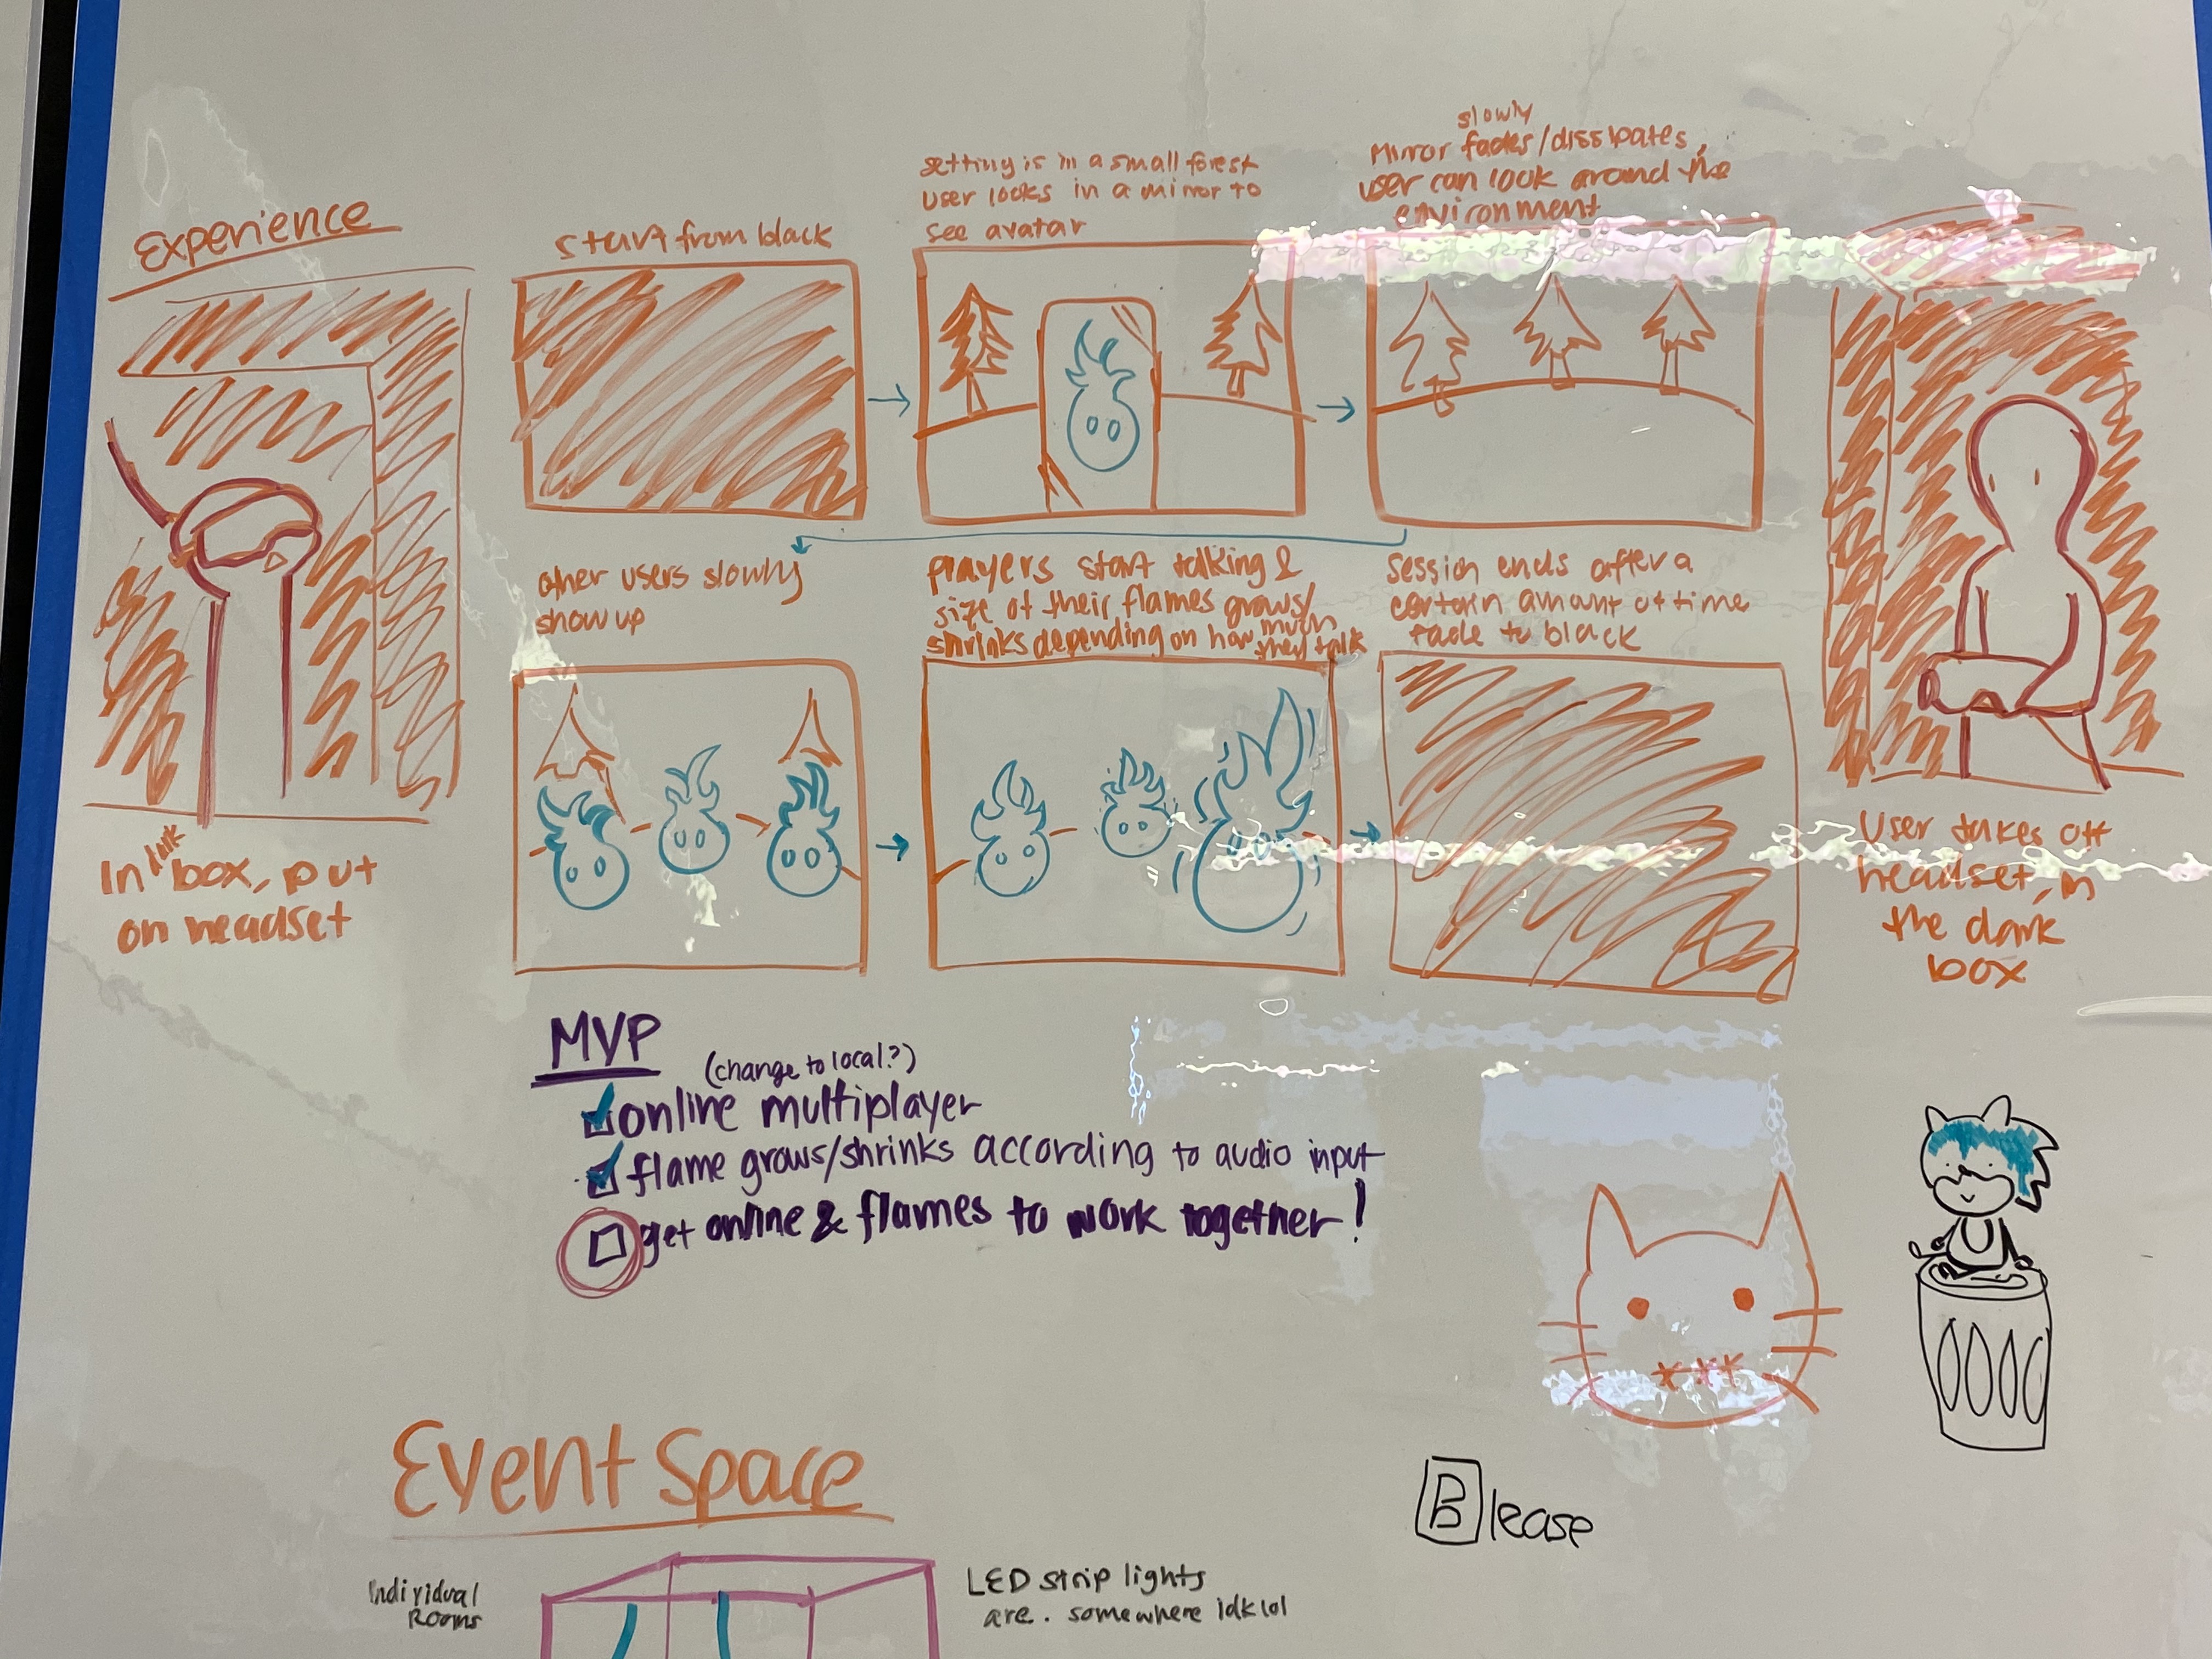 Experience
start from black
setting is in a small forest
user looks in a mirror to
see avatar
slowly
Mirror fades/dissipates,
user can look around the
environment
other users slowly
show up
players start talking &
size of their flames grows/
shrinks depending on how much
they talk
session ends after a
certain amount of time
fade to black
In dark box, put
on headset
User takes off
headset, in
the dark
box
MVP
(change to local?)
online multiplayer
flame grows/shrinks according to audio input
get online & flames to work together!
Blease
Event Space
Individual
Rooms
LED strip lights
are. somewhere idk lol